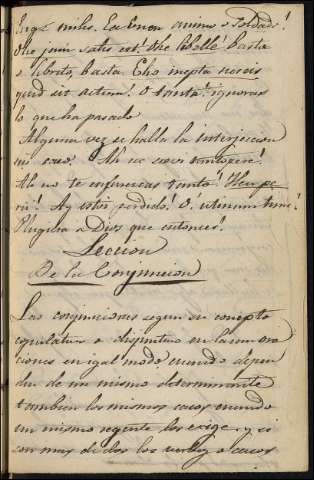 Euge miles. Ea Enon animo o Soldado!
Ohe jam satis est! Ohe libelle! basta
o librito, basta. Eho inepta nescis
quid sit actum! O tonta! ignoras
lo que ha pasado.
Alguna vez se halla la interjeccion
Ah ne saevi tantopere!
Ah no te enfurezcas tanto! Heu pe
rii! Ay estoy perdido! O utinam tunc!
Pluguiera a Dios que entonces!
Leccion
De la Conjuncion
Las conjunciones segun su concepto
copulativo o disjuntivo en laran ora
ciones en igual modo cuando depen
den de un mismo determinante
tambien los mismos casos cuando
un mismo regente los exige, y si
son mas de dos los verbos o casos